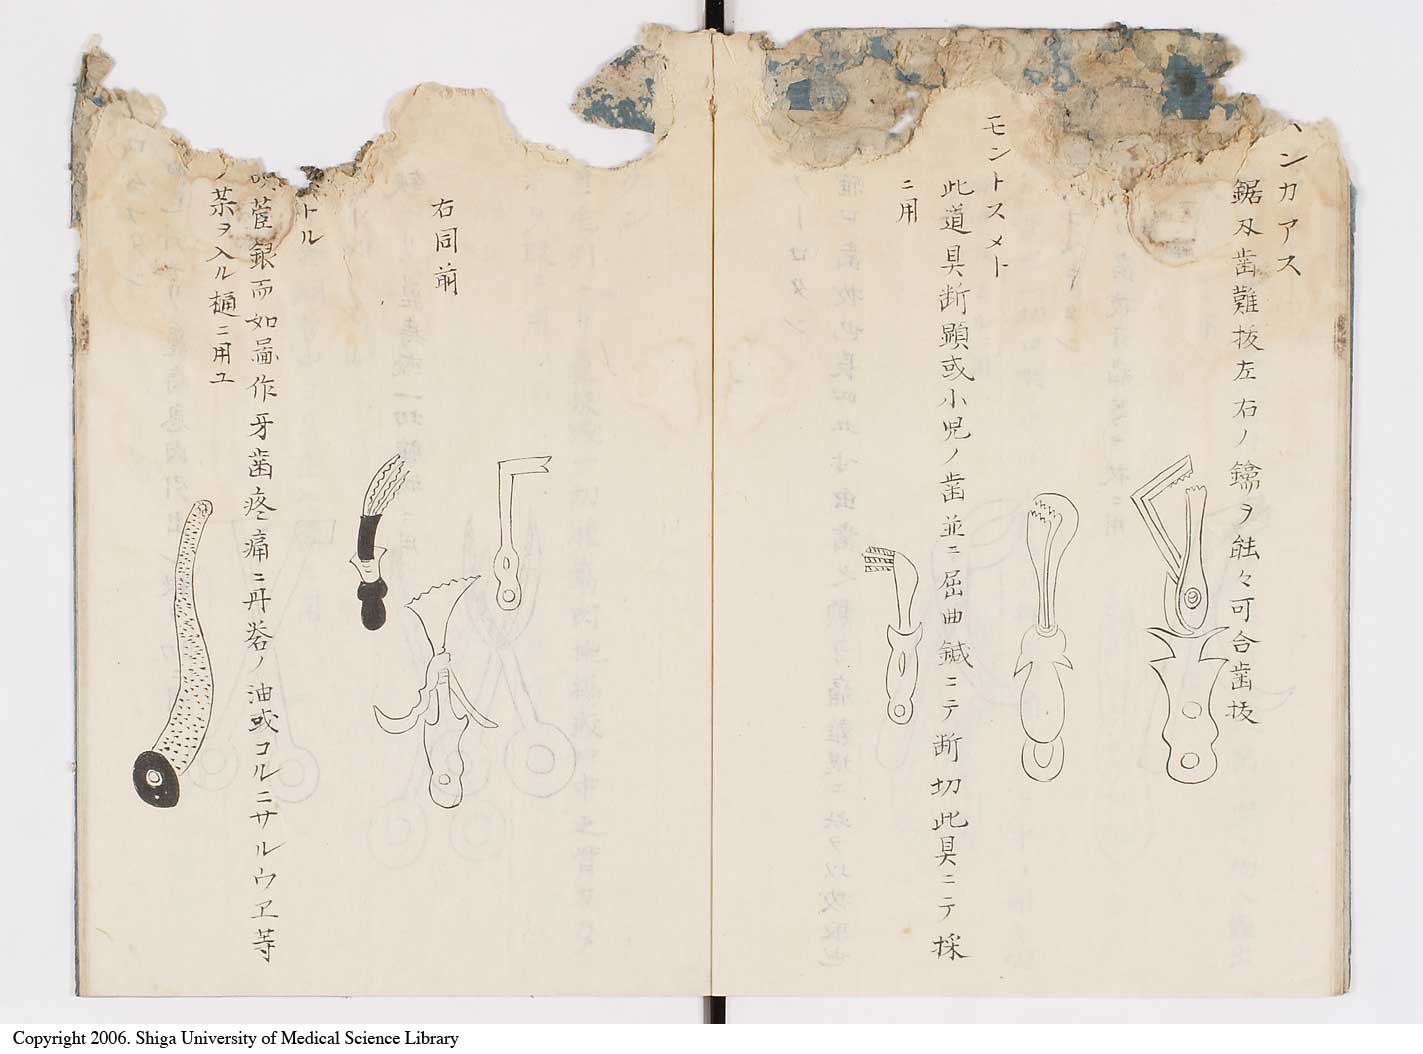 ンカアス
鋸刄歯難抜左右ノ鐺ヲ能々可合歯抜
モントスメト
此道具断顕或小児ノ歯並ニ屈曲鍼ニテ断切此具ニテ採
ニ用
右同前
トル
管銀而如畾作牙歯疼痛ニ丹礬ノ油或コルニサルウヱ等
ノ茶ヲ入ル樋ニ用ユ
Copyright 2006. Shiga University of Medical Science Library